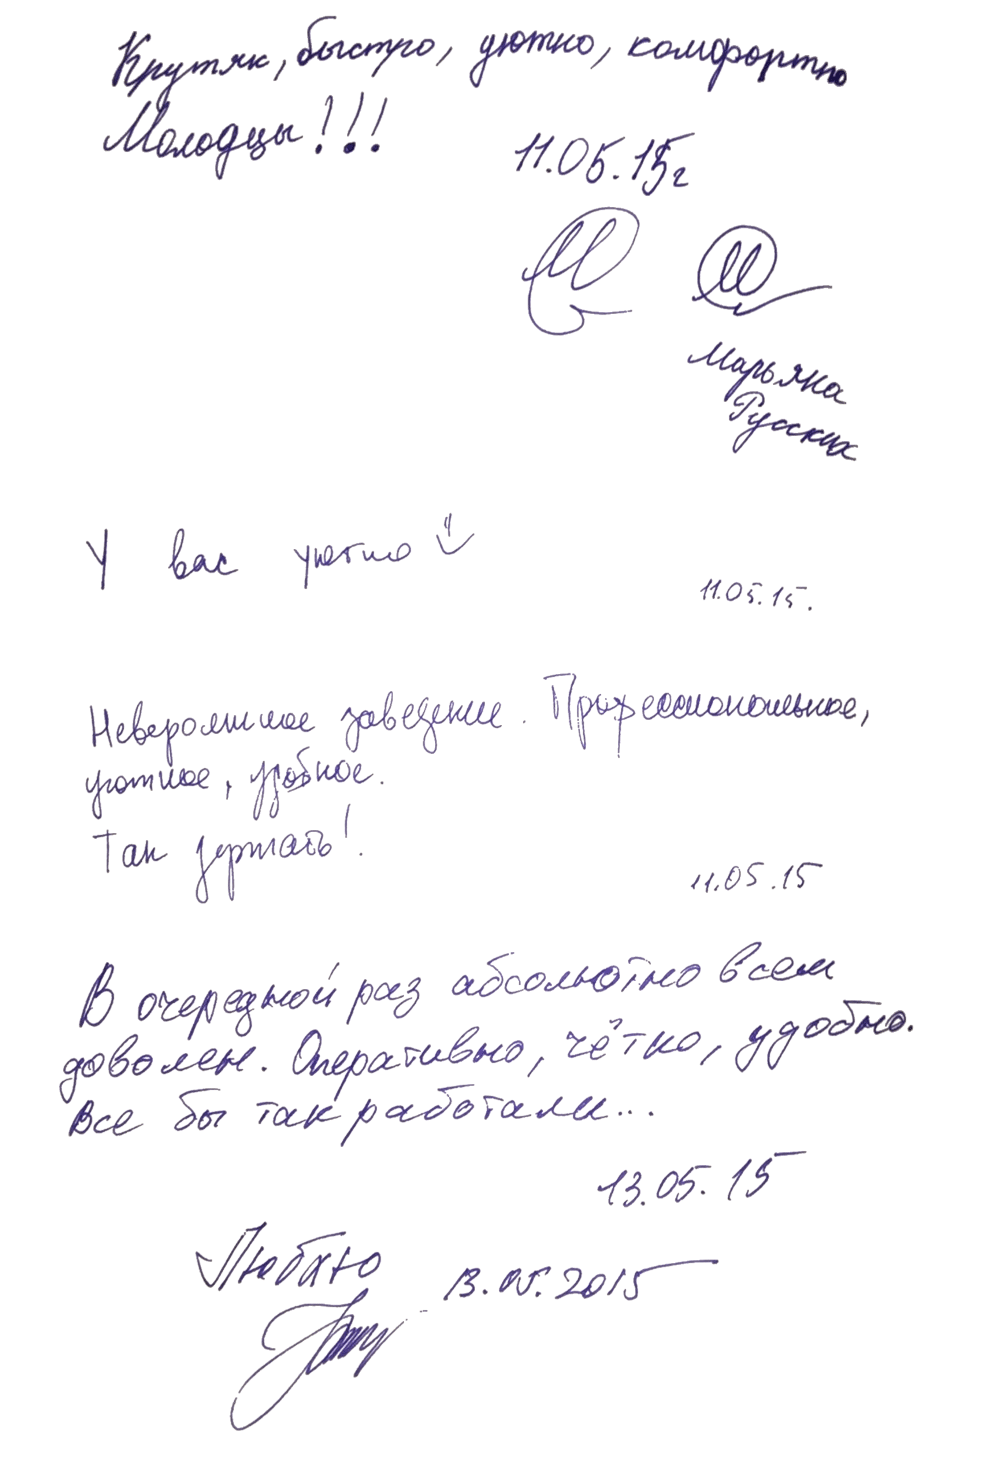 Крутяк, быстро, уютно, комфортно
Молодцы!!!
11.05.15г
Марьяна
Русских
У вас уютно
11.05.15.
Невероятное заведение. Профессиональное,
уютное, удобное.
Так держать!
11.05.15
В очередной раз абсолютно всем
доволен. Оперативно, чётко, удобно.
Все бы так работали...
13.05.15
Любхю
13.05.2015